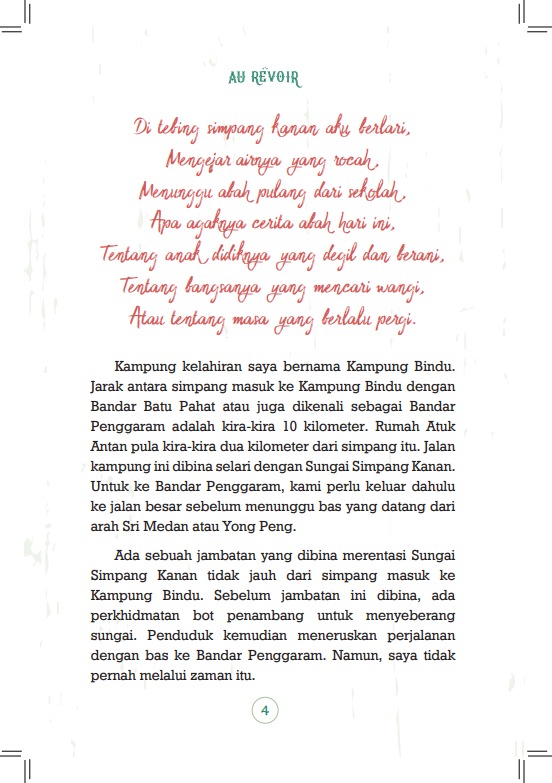 AU RÊVOIR
Di tebing simpang kanan aku berlari,
Mengejar airnya yang rocah,
Menunggu abah pulang dari sekolah,
Apa agaknya cerita abah hari ini,
Tentang anak didiknya yang degil dan berani,
Tentang bangsanya yang mencari wangi,
Atau tentang masa yang berlalu pergi.
Kampung kelahiran saya bernama Kampung Bindu.
Jarak antara simpang masuk ke Kampung Bindu dengan
Bandar Batu Pahat atau juga dikenali sebagai Bandar
Penggaram adalah kira-kira 10 kilometer. Rumah Atuk
Antan pula kira-kira dua kilometer dari simpang itu. Jalan
kampung ini dibina selari dengan Sungai Simpang Kanan.
Untuk ke Bandar Penggaram, kami perlu keluar dahulu
ke jalan besar sebelum menunggu bas yang datang dari
arah Sri Medan atau Yong Peng.
Ada sebuah jambatan yang dibina merentasi Sungai
Simpang Kanan tidak jauh dari simpang masuk ke
Kampung Bindu. Sebelum jambatan ini dibina, ada
perkhidmatan bot penambang untuk menyeberang
sungai. Penduduk kemudian meneruskan perjalanan
dengan bas ke Bandar Penggaram. Namun, saya tidak
pernah melalui zaman itu.
4